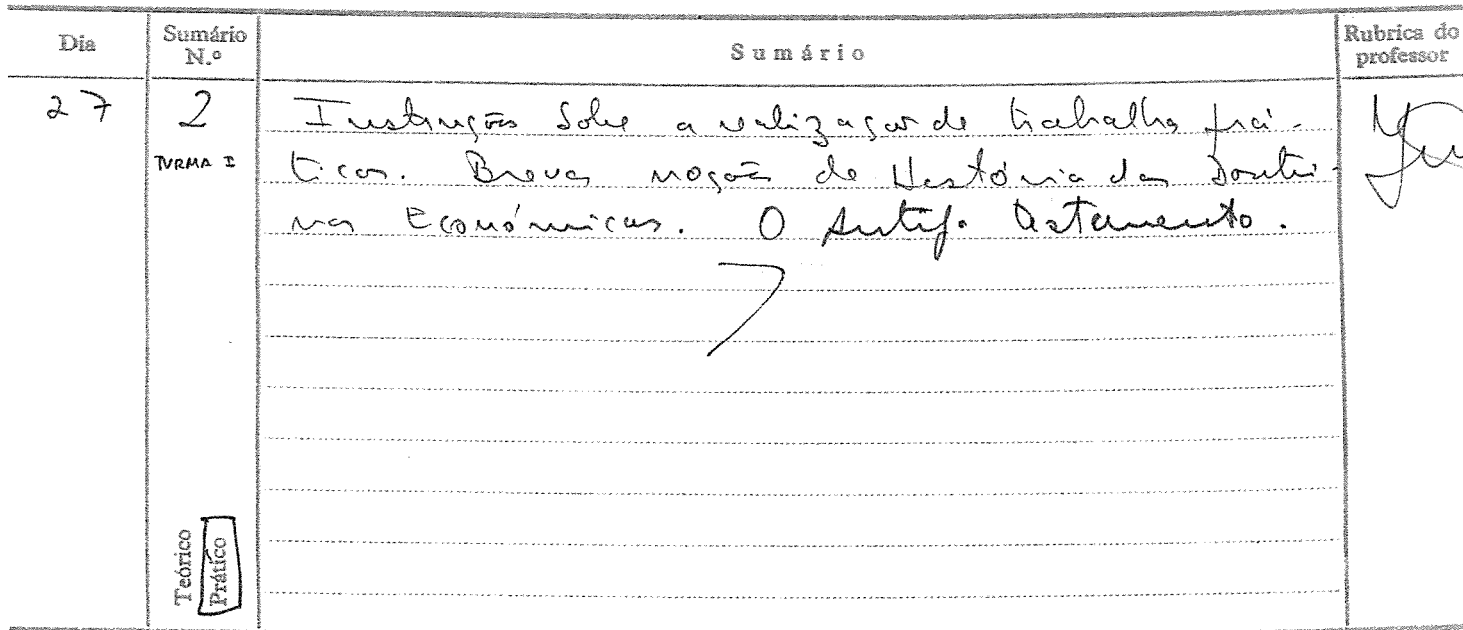 Dia
Sumário N.º
Sumário
Rubrica do professor
27
2
TURMA I
Instruções sobre a realização de trabalhos prá-
ticos. Breves noções de História das Doutri-
nas Económicas. O Antigo Testamento.
Teórico
Prático